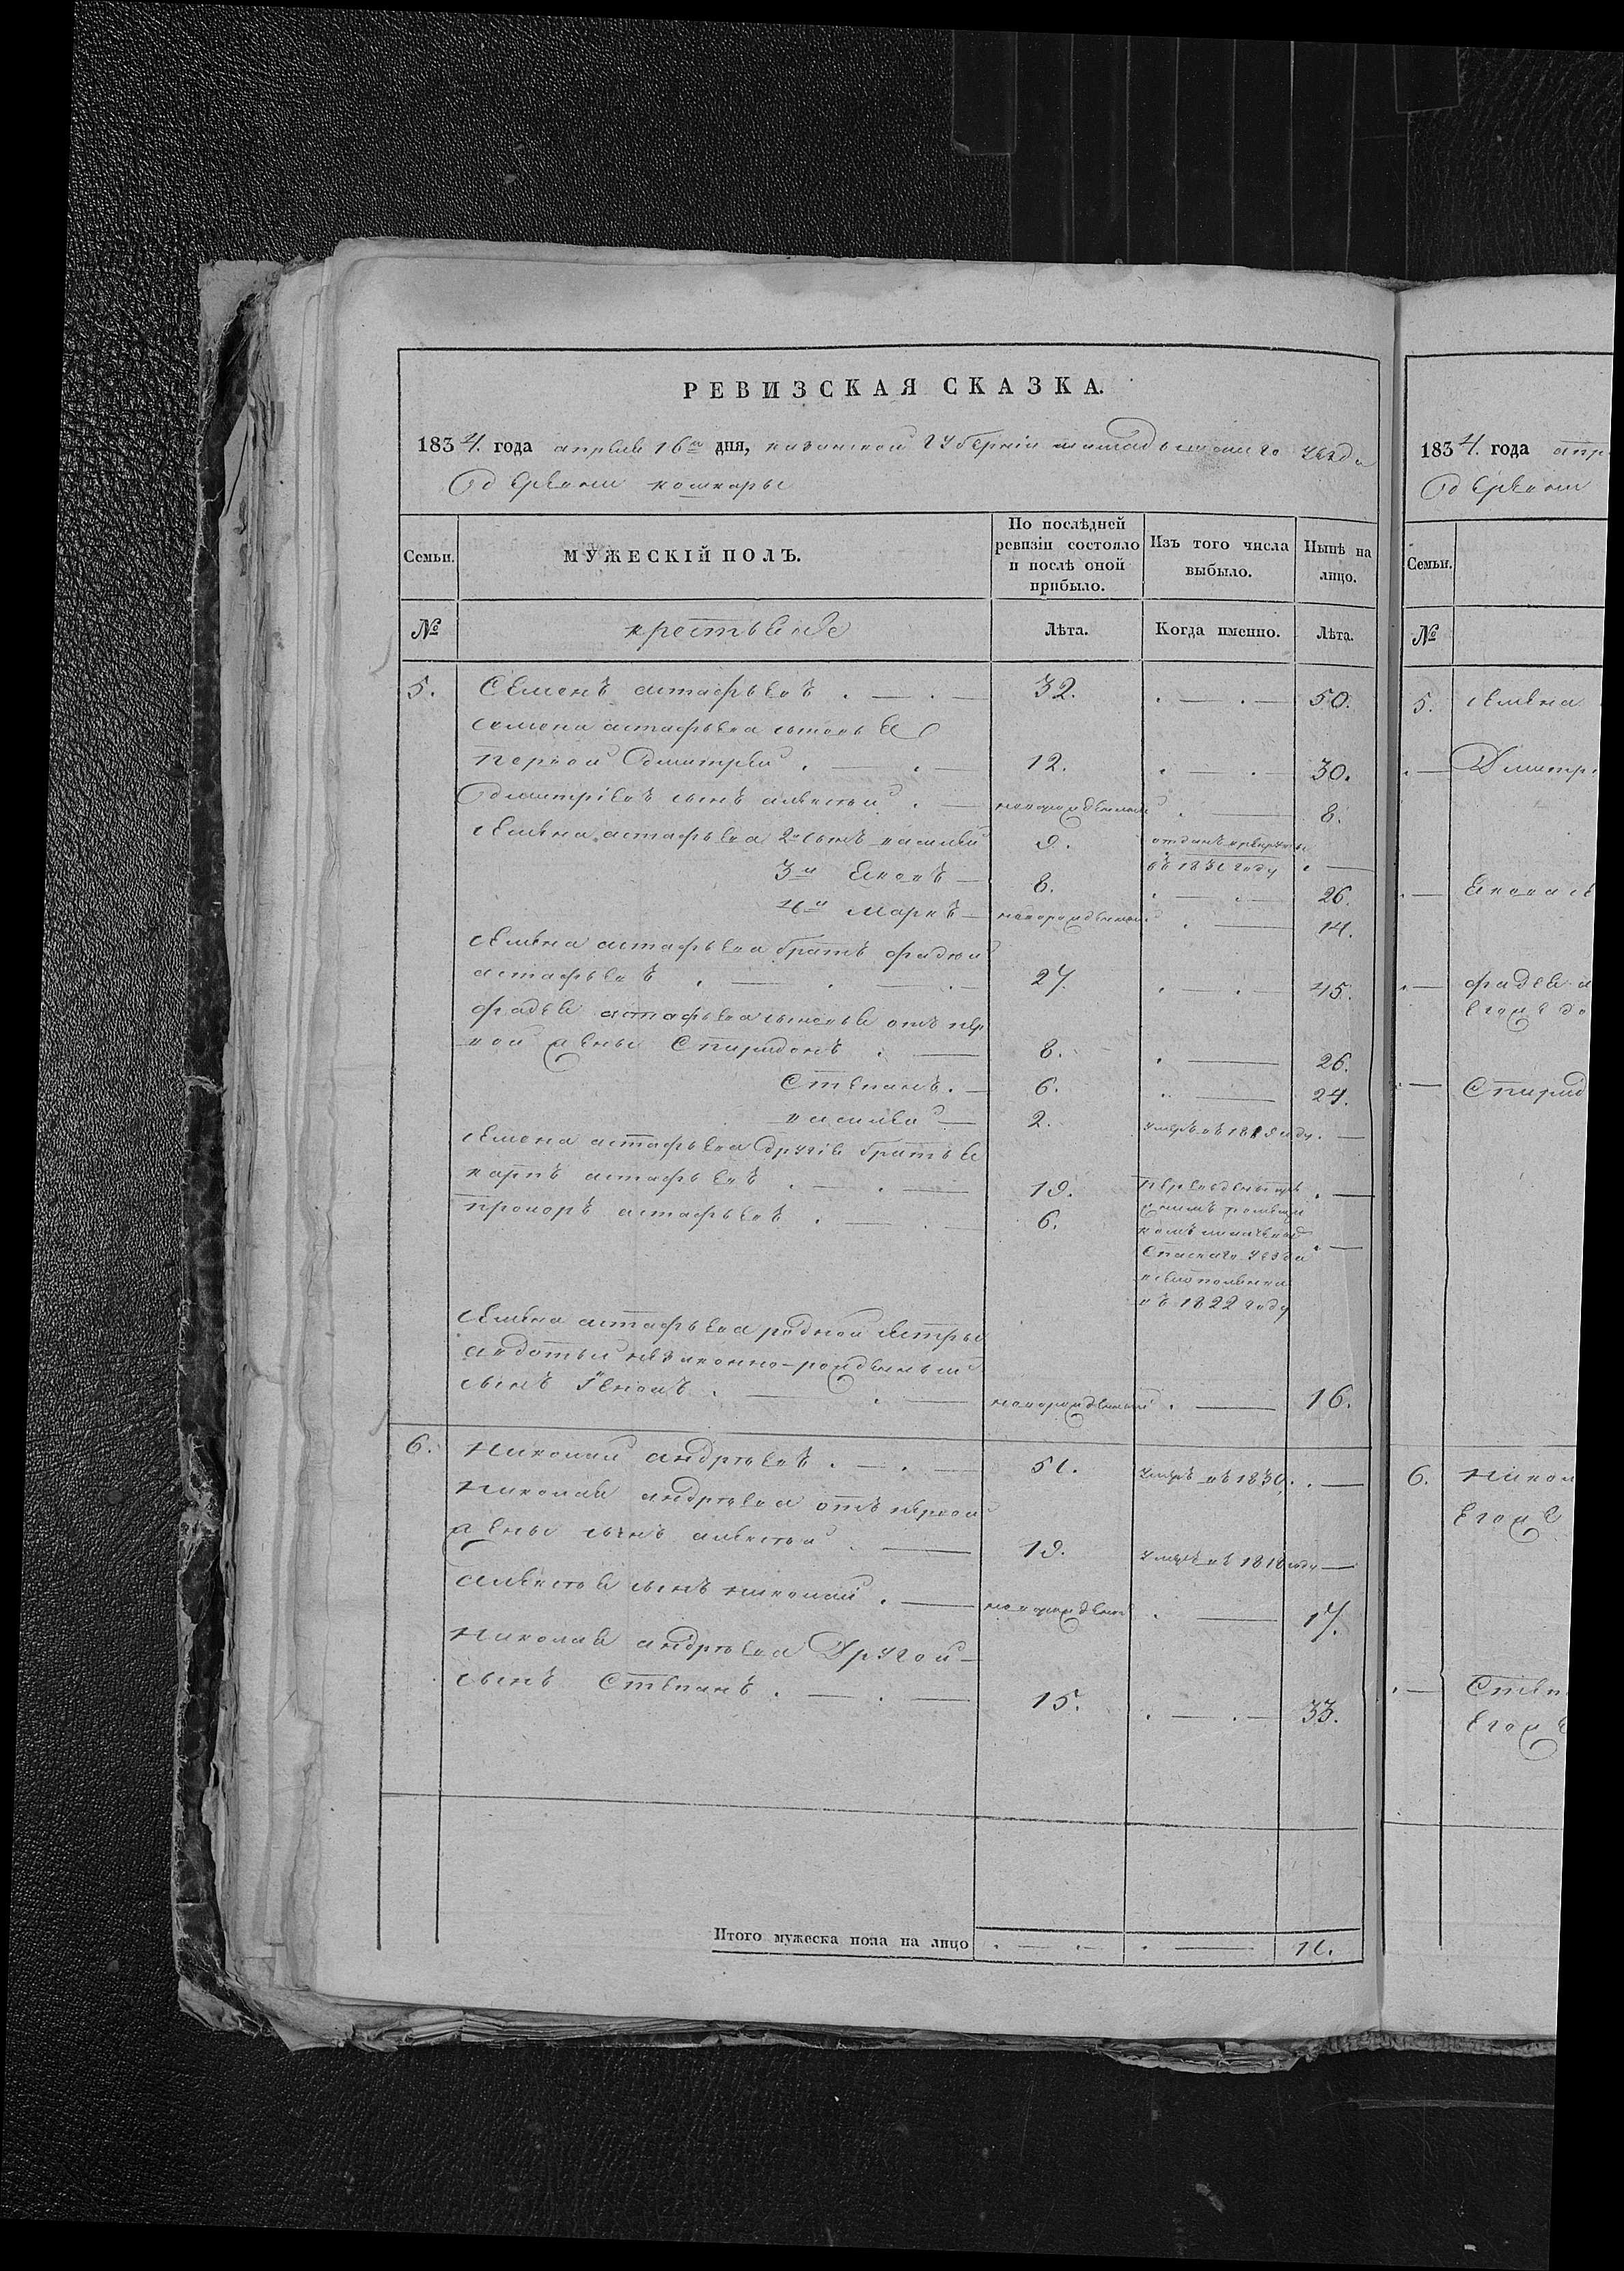 РЕВИЗСКАЯ СКАЗКА.
1834. года апреля 16го дня, казанской губернии уезда
деревни кошкары
Семьи. МУЖЕСКІЙ ПОЛЪ. По послѣдней ревизіи состояло и послѣ оной прибыло. Изъ того числа выбыло. Нынѣ на лицо.
№ крестьяне Лѣта. Когда именно. Лѣта.
5. Семенъ астафьевъ . — . — 32. . — . — 50.
семена астафьева сыновья
первой дмитрей . — . — 12. . — . — 30.
дмитріевъ сынъ алексей . — новорожденный . — 8.
семена астафьева 2й сынъ василей 9. отданъ в рекруты
въ 1831 году . —
3й Яковъ — 8. . — . — 26.
4й Маркъ — новорожденной . — 14.
семена астафьева братъ фадей
астафьевъ . — . — . — 27. . — . — 45.
фадея астафьева сыновья отъ пер
вой жены Спиридонъ . — 8. . — 26.
Степанъ . — 6. . — 24.
василей — 2. умре въ 1819 году . —
семена астафьева другія братья
карпъ астафьевъ . — . — 19. . —
прохоръ астафьевъ . — . — 6. . —
Спаскаго уезда
въ 1822 году
семена астафьева родной сестры
авдотьи незаконно-рожденный
сынъ . — . — новорожденный . — 16.
6. Николай андреевъ . — . — 51. умре въ 1831. . —
Николая андреева отъ первой
жены сынъ алексей . — 19. умре въ 1818 году —
алексея сынъ николай . — новорожденой . — 17.
Николая андреева Другой —
сынъ Степанъ . — . — 15. . — . — 33.
Итого мужеска пола на лицо . — . — . — 11.
1834. года апр
деревни
Семьи.
№
5. семена
. — Дмитр
. — Якова
. — фадея а
его же до
. — Спирид
6. Никол
его же
. — Степ
его же